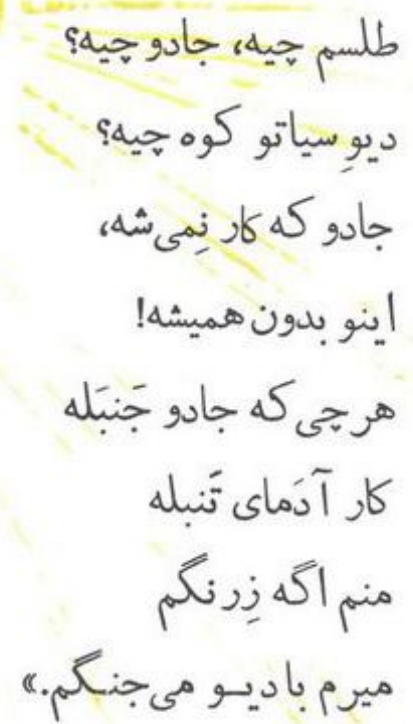 طلسم چیه، جادو چیه؟
دیوِ سیاتو کوه چیه؟
جادو که کار نِمی‌شه،
اینو بدون همیشه!
هرچی که جادو جَنبَله
کار آدَمای تَنبله
منم اگه زِرنگم
میرم با دیو می‌جنگم.»